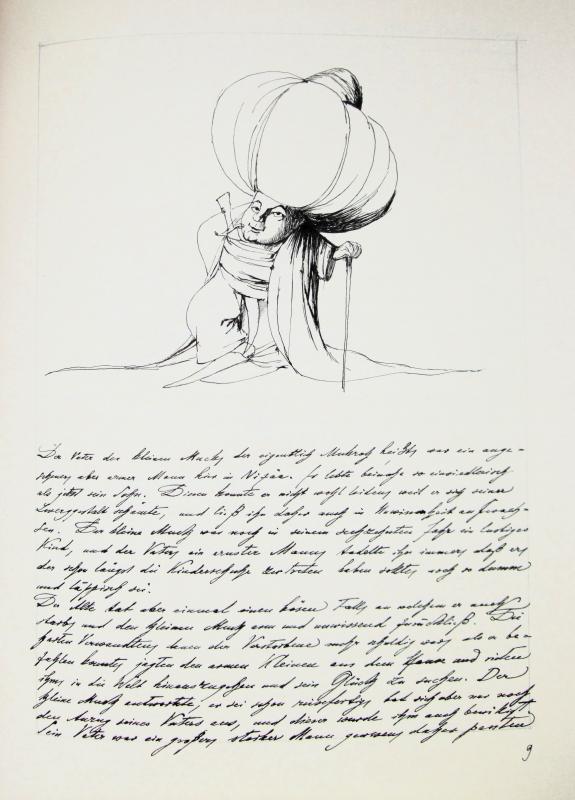 Der Vater des kleinen Muck, der eigentlich Mukrah heißt, war ein ange-
sehener, aber armer Mann hier in Nizäa. Er lebte beinahe so einsiedlerisch
als jetzt sein Sohn. Diesen konnte er nicht wohl leiden, weil er sich seiner
Zwerggestalt schämte, und ließ ihn daher auch in Unwissenheit aufwach-
sen. Der kleine Muck war noch in seinem sechzehnten Jahr ein lustiges
Kind, und der Vater, ein ernster Mann, tadelte ihn immer, daß er,
der schon längst die Kinderschuhe zertreten haben sollte, noch so dumm
und läppisch sei.
Der Alte tat aber einmal einen bösen Fall, an welchem er auch
starb, und den kleinen Muck arm und unwissend zurückließ. Die
harten Verwandten, denen der Verstorbene mehr schuldig war, als er be-
zahlen konnte, jagten den armen Kleinen aus dem Hause und rieten
ihm, in die Welt hinauszugehen und sein Glück zu suchen. Der
kleine Muck antwortete, er sei schon reisefertig, bat sich aber nur noch
den Anzug seines Vaters aus, und dieser wurde ihm auch bewilligt.
Sein Vater war ein großer, starker Mann gewesen, daher passten
9